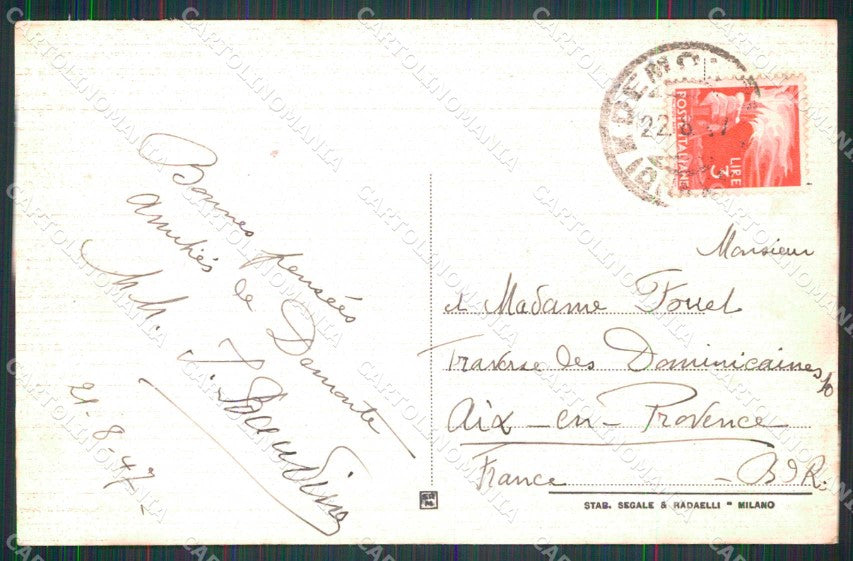 Bonnes pensées
amitiés de Demonte
21-8-47-
DEMONTE
22.8.47
POSTE ITALIANE
LIRE
3
Monsieur
et Madame Fouet
Traverse des Dominicaines
Aix-en-Provence
France - B.D.R.
STAB. SEGALE & RADAELLI - MILANO
CARTOLINOMANIA